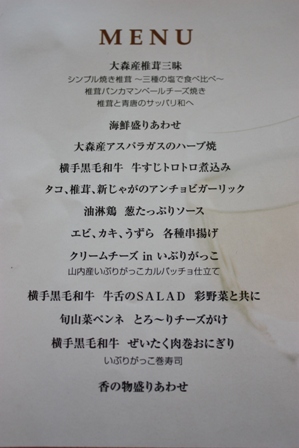 MENU
大森産椎茸三昧
シンプル焼き椎茸 ～三種の塩で食べ比べ～
椎茸パンカマンベールチーズ焼き
椎茸と青唐のサッパリ和へ
海鮮盛りあわせ
大森産アスパラガスのハーブ焼
横手黒毛和牛 牛すじトロトロ煮込み
タコ、椎茸、新じゃがのアンチョビガーリック
油淋鶏 葱たっぷりソース
エビ、カキ、うずら 各種串揚げ
クリームチーズ in いぶりがっこ
山内産いぶりがっこカルパッチョ仕立て
横手黒毛和牛 牛舌のSALAD 彩野菜と共に
旬山菜ペンネ とろ～りチーズがけ
横手黒毛和牛 ぜいたく肉巻おにぎり
いぶりがっこ巻寿司
香の物盛りあわせ